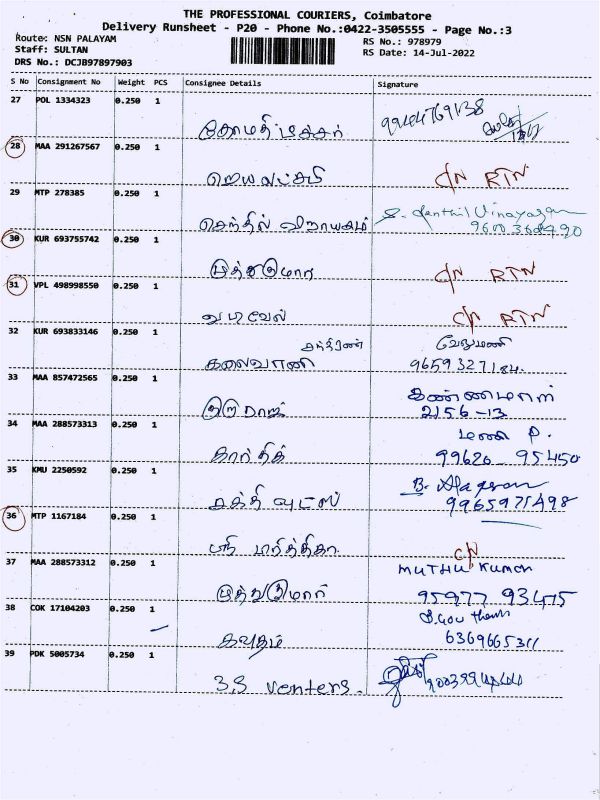 THE PROFESSIONAL COURIERS, Coimbatore
Delivery Runsheet - P20 - Phone No.:0422-3505555 - Page No.:3
Route: NSN PALAYAM
RS No.: 978979
Staff: SULTAN
RS Date: 14-Jul-2022
DRS No.: DCJB97897903
S No Consignment No Weight PCS Consignee Details Signature
27 POL 1334323 0.250 1
கோமதி டீச்சர் 9944769138
28 MAA 291267567 0.250 1
ஜெயலட்சுமி C/N RTN
29 MTP 278385 0.250 1
செந்தில் விநாயகம் S. Senthil Vinayagam
30 KUR 693755742 0.250 1
முத்துகுமார் C/N RTN
31 VPL 498998550 0.250 1
வடிவேல் C/N RTN
32 KUR 693833146 0.250 1
வேலுமணி
கலைவாணி
33 MAA 857472565 0.250 1
கண்ணம்மாள்
குருராஜ் 2156-13
34 MAA 288573313 0.250 1
மணி P.
கார்த்திக் 99620-95450
35 KMU 2250592 0.250 1
சக்தி வுட்ஸ் 9965971498
36 MTP 1167184 0.250 1
ஸ்ரீ C/N
37 MAA 288573312 0.250 1
MUTHU KUMAR
முத்துகுமார் 95977 93475
38 COK 17104203 0.250 1
S.Gowtham
கவுதம் 6369665311
39 PDK 5005734 0.250 1
3,S venters.